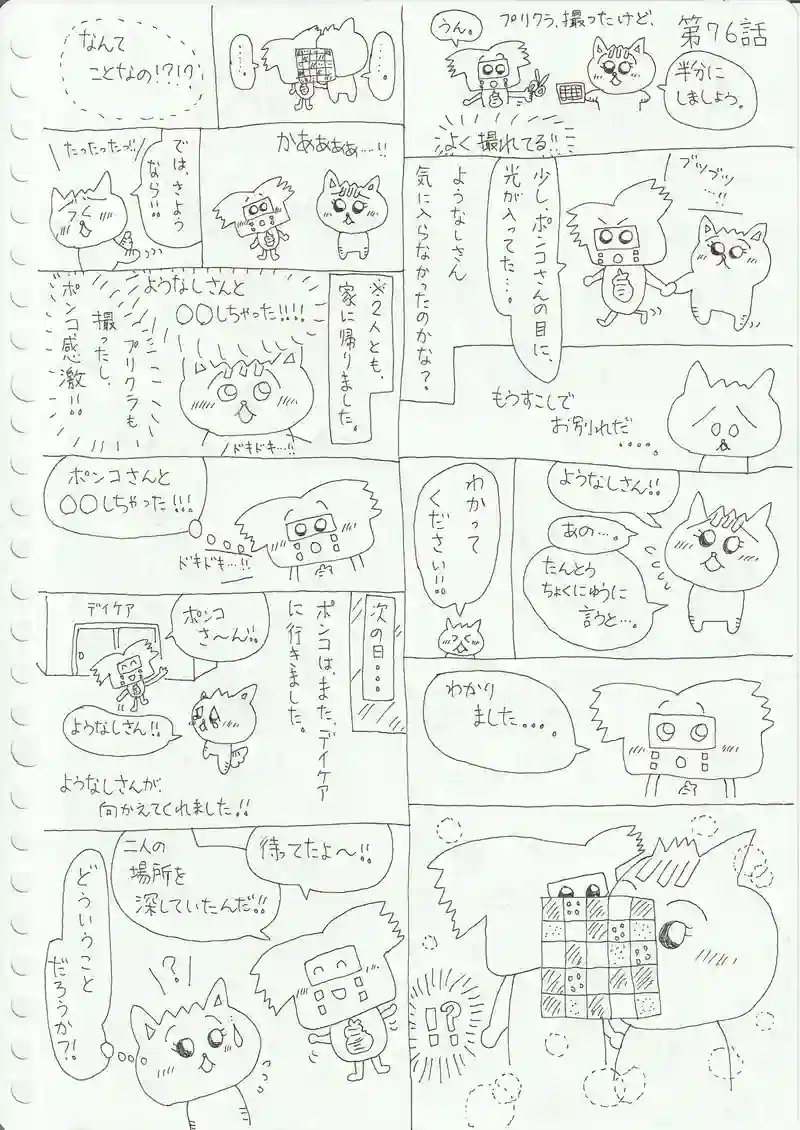 第76話
プリクラ、撮ったけど、
半分に
しましょう。
うん。
よく撮れてる!!
ブツブツ
…!!
少し、ポンコさんの目に、
光が入ってた…。
ようなしさん
気に入らなかったのかな?
もうすこしで
お別れだ
・・・・。
ようなしさん!!
あの…。
たんとう
ちょくにゅうに
言うと…。
わかって
ください!!
わかり
ました・・・。
!?
・・・・。
・・・・。
なんて
ことなの!?!?
かあぁぁぁぁ…!!
では、さよう
なら!!
たったったっ!!
※2人とも、
家に帰りました。
ようなしさんと
○○しちゃった!!!!
プリクラも
撮ったし、
ポンコ感激!!
ドキドキ…!!
ポンコさんと
○○しちゃった!!!
ドキドキ…!!
次の日・・・
ポンコは、また、デイケア
に行きました。
デイケア
ポンコ
さ〜ん!!
ようなしさん!!
ようなしさんが、
向かえてくれました!!
待ってたよ〜!!
二人の
場所を
深していたんだ!!
?
どういうこと
だろうか?!